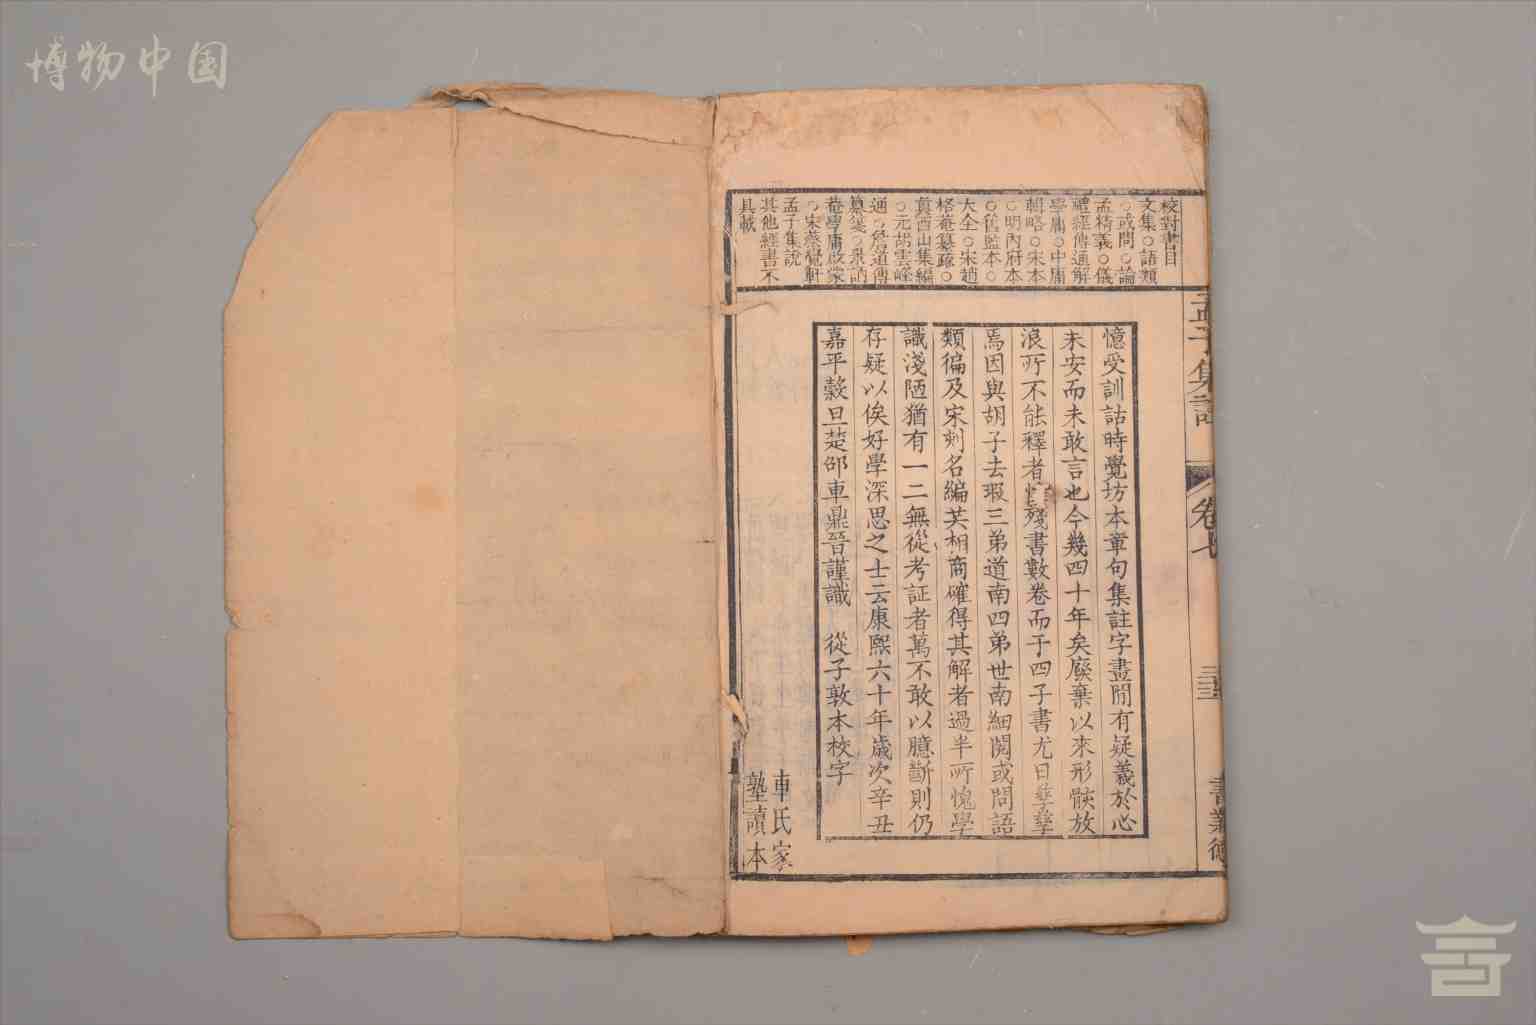 博物中国
校對書目
文集○語類
○或問○論
孟精義○儀
禮經傳通解
學庸○中庸
輯略○宋本
○明內府本
○舊監本○
大全○宋趙
格菴纂疏○
真西山集編
○元胡雲峰
通○詹道傳
纂箋○景訥
菴學庸啟蒙
○宋蔡覺軒
孟子集說
其他經書不
具載
憶受訓詁時覺坊本章句集註字畫閒有疑義於心
未安而未敢言也今幾四十年矣廢棄以來形骸放
浪所不能釋者惟殘書數卷而于四子書尤日孳孳
焉因與胡子去瑕三弟道南四弟世南細閱或問語
類徧及宋刻名編共相商確得其解者過半所愧學
識淺陋猶有一二無從考証者萬不敢以臆斷則仍
存疑以俟好學深思之士云康熙六十年歲次辛丑
嘉平穀旦楚邵車鼎晉謹識　從子敦本校字
車氏家
塾讀本
孟子集註
卷七
書業德